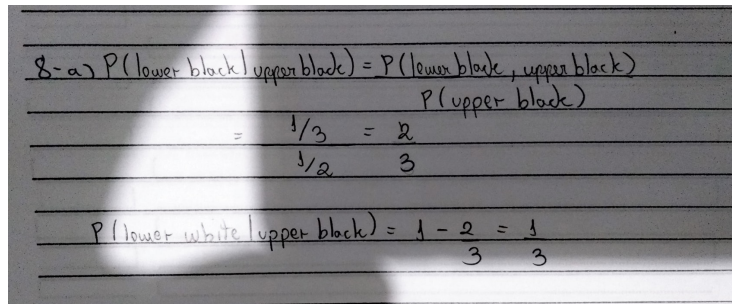 8-a) P(lower black | upper black) = P(lower black, upper black)
P(upper black)
= 1/3 = 2
1/2 3
P(lower white | upper black) = 1 - 2 = 1
3 3